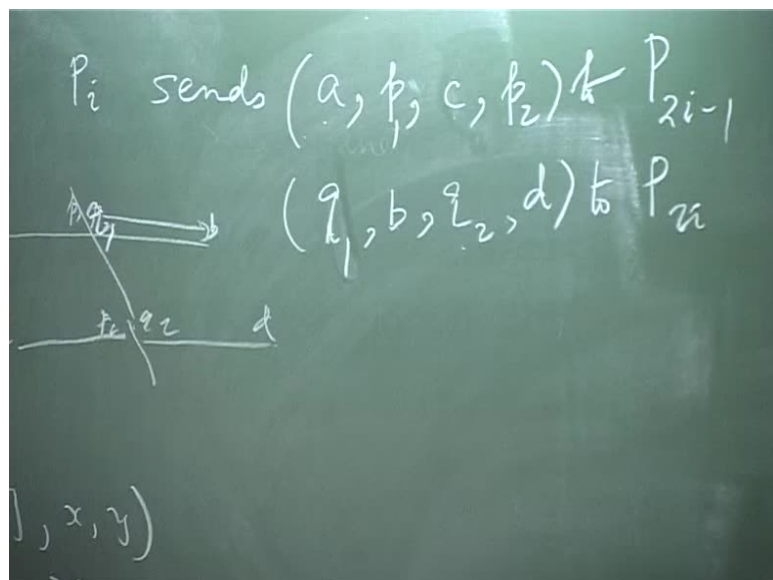 P_i sends (a, p_1, c, p_2) to P_{2i-1}
(q_1, b, q_2, d) to P_{2i}
p_1 q_1 b
p_2 q_2 d
], x, y)